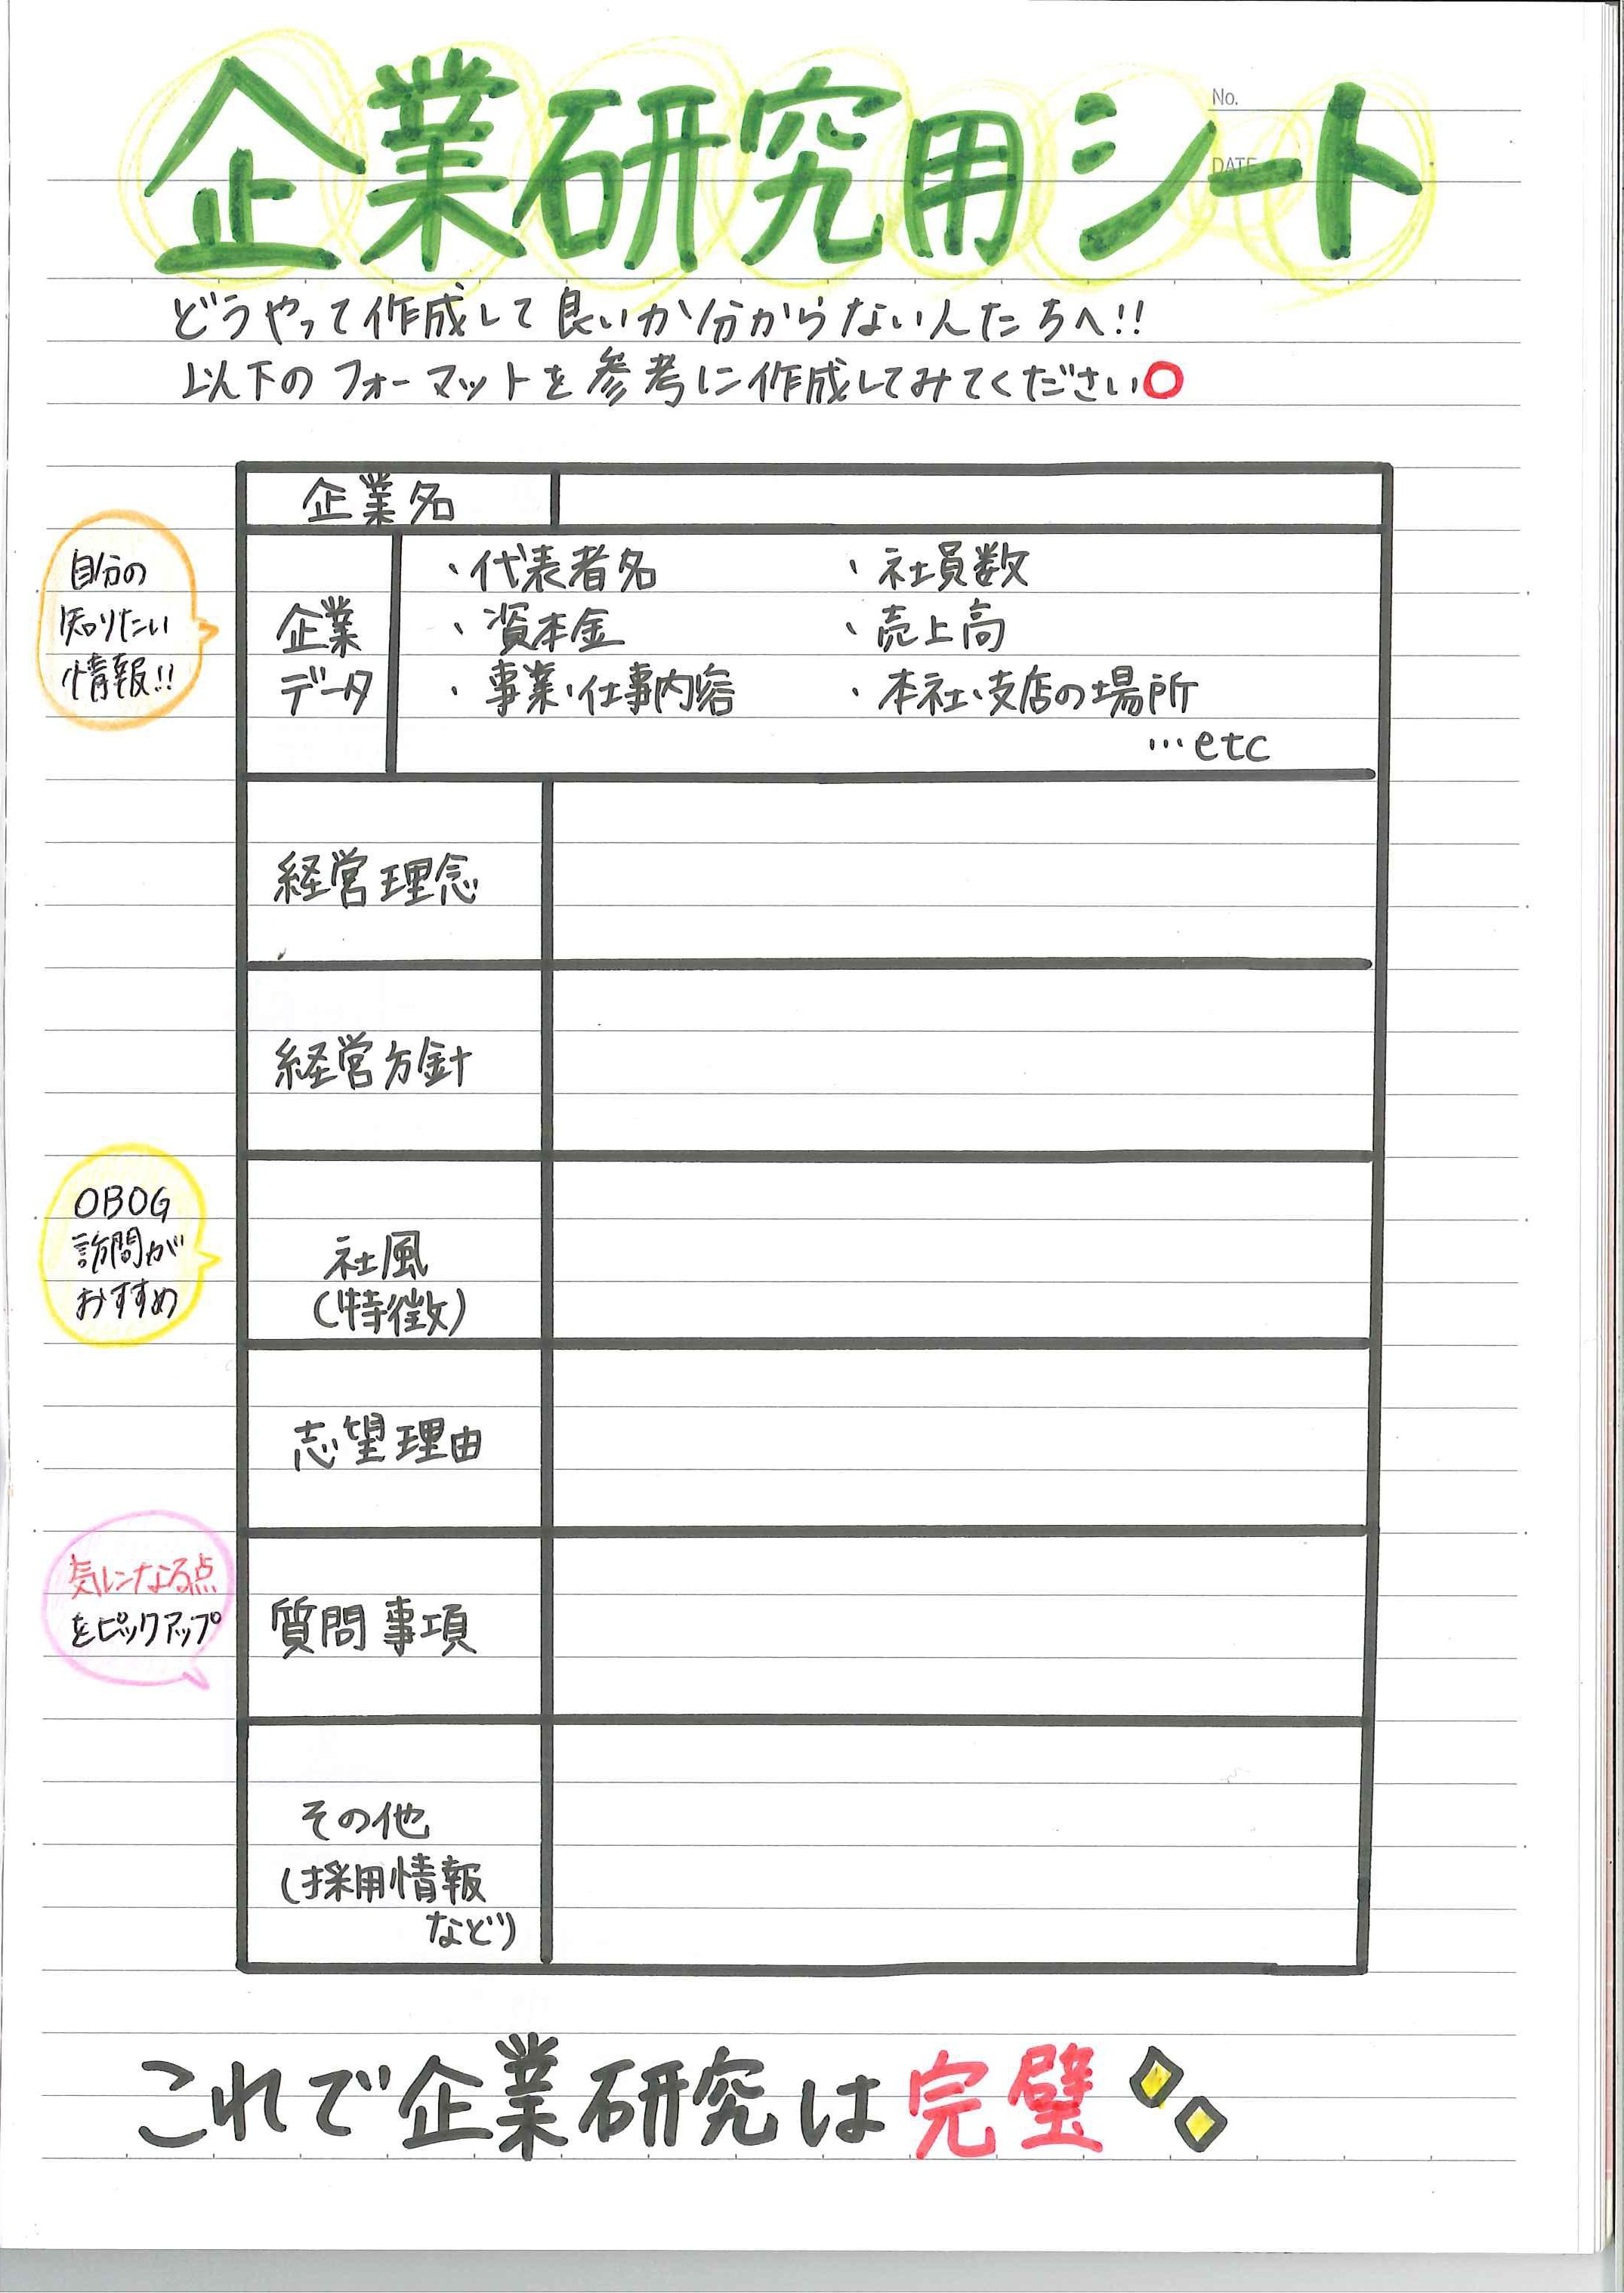 企業研究用シート
No.
DATE
どうやって作成して良いか分からない人たちへ!!
以下のフォーマットを参考に作成してみてください○
企業名
自分の
知りたい
情報!!
企業
データ
・代表者名 ・社員数
・資本金 ・売上高
・事業・仕事内容 ・本社・支店の場所
…etc
経営理念
経営方針
OBOG
訪問が
おすすめ
社風
(特徴)
志望理由
気になる点
をピックアップ
質問事項
その他
(採用情報
など)
これで企業研究は完璧